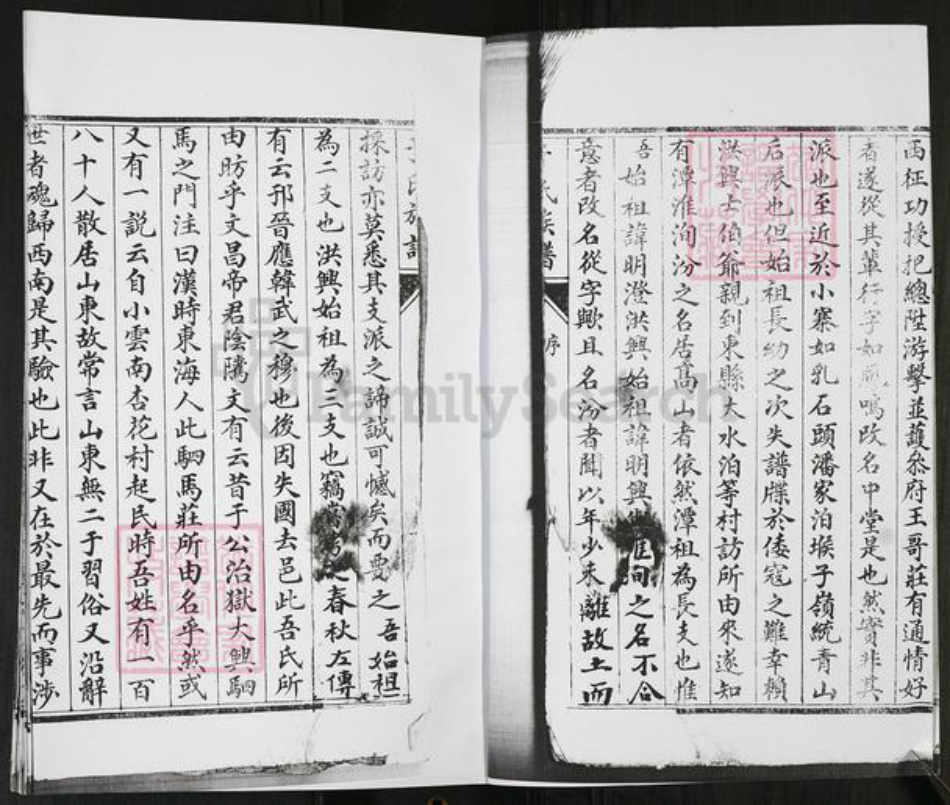 西征功授把總陞游擊並護叅府王哥莊有通情好
者遂從其輩行字如鳳鳴改名中堂是也然實非其
派也至近於小寨如乳石頭潘家泊堠子嶺統青山
后派也但始祖長幼之次失譜牒於倭寇之難幸賴
洪興士伯爺親到東縣大水泊等村訪所由來遂知
有潭淮洵汾之名居高山者依然潭祖為長支也惟
吾始祖諱明澄洪興始祖諱明興與淮洵之名不合
意者改名從字歟且名汾者聞以年少未離故土而
氏族譜
序
于氏族譜
採訪亦莫悉其支派之諦誠可憾矣而要之吾始祖
為二支也洪興始祖為三支也竊嘗考之春秋左傳
有云邗晉應韓武之穆也後因失國去邑此吾氏所
由昉乎文昌帝君陰隲文有云昔于公治獄大興駟
馬之門注曰漢時東海人此駟馬莊所由名乎然或
又有一說云自小雲南杏花村起民時吾姓有一百
八十人散居山東故常言山東無二于習俗又沿辭
世者魂歸西南是其驗也此非又在於最先而事涉
FamilySearch